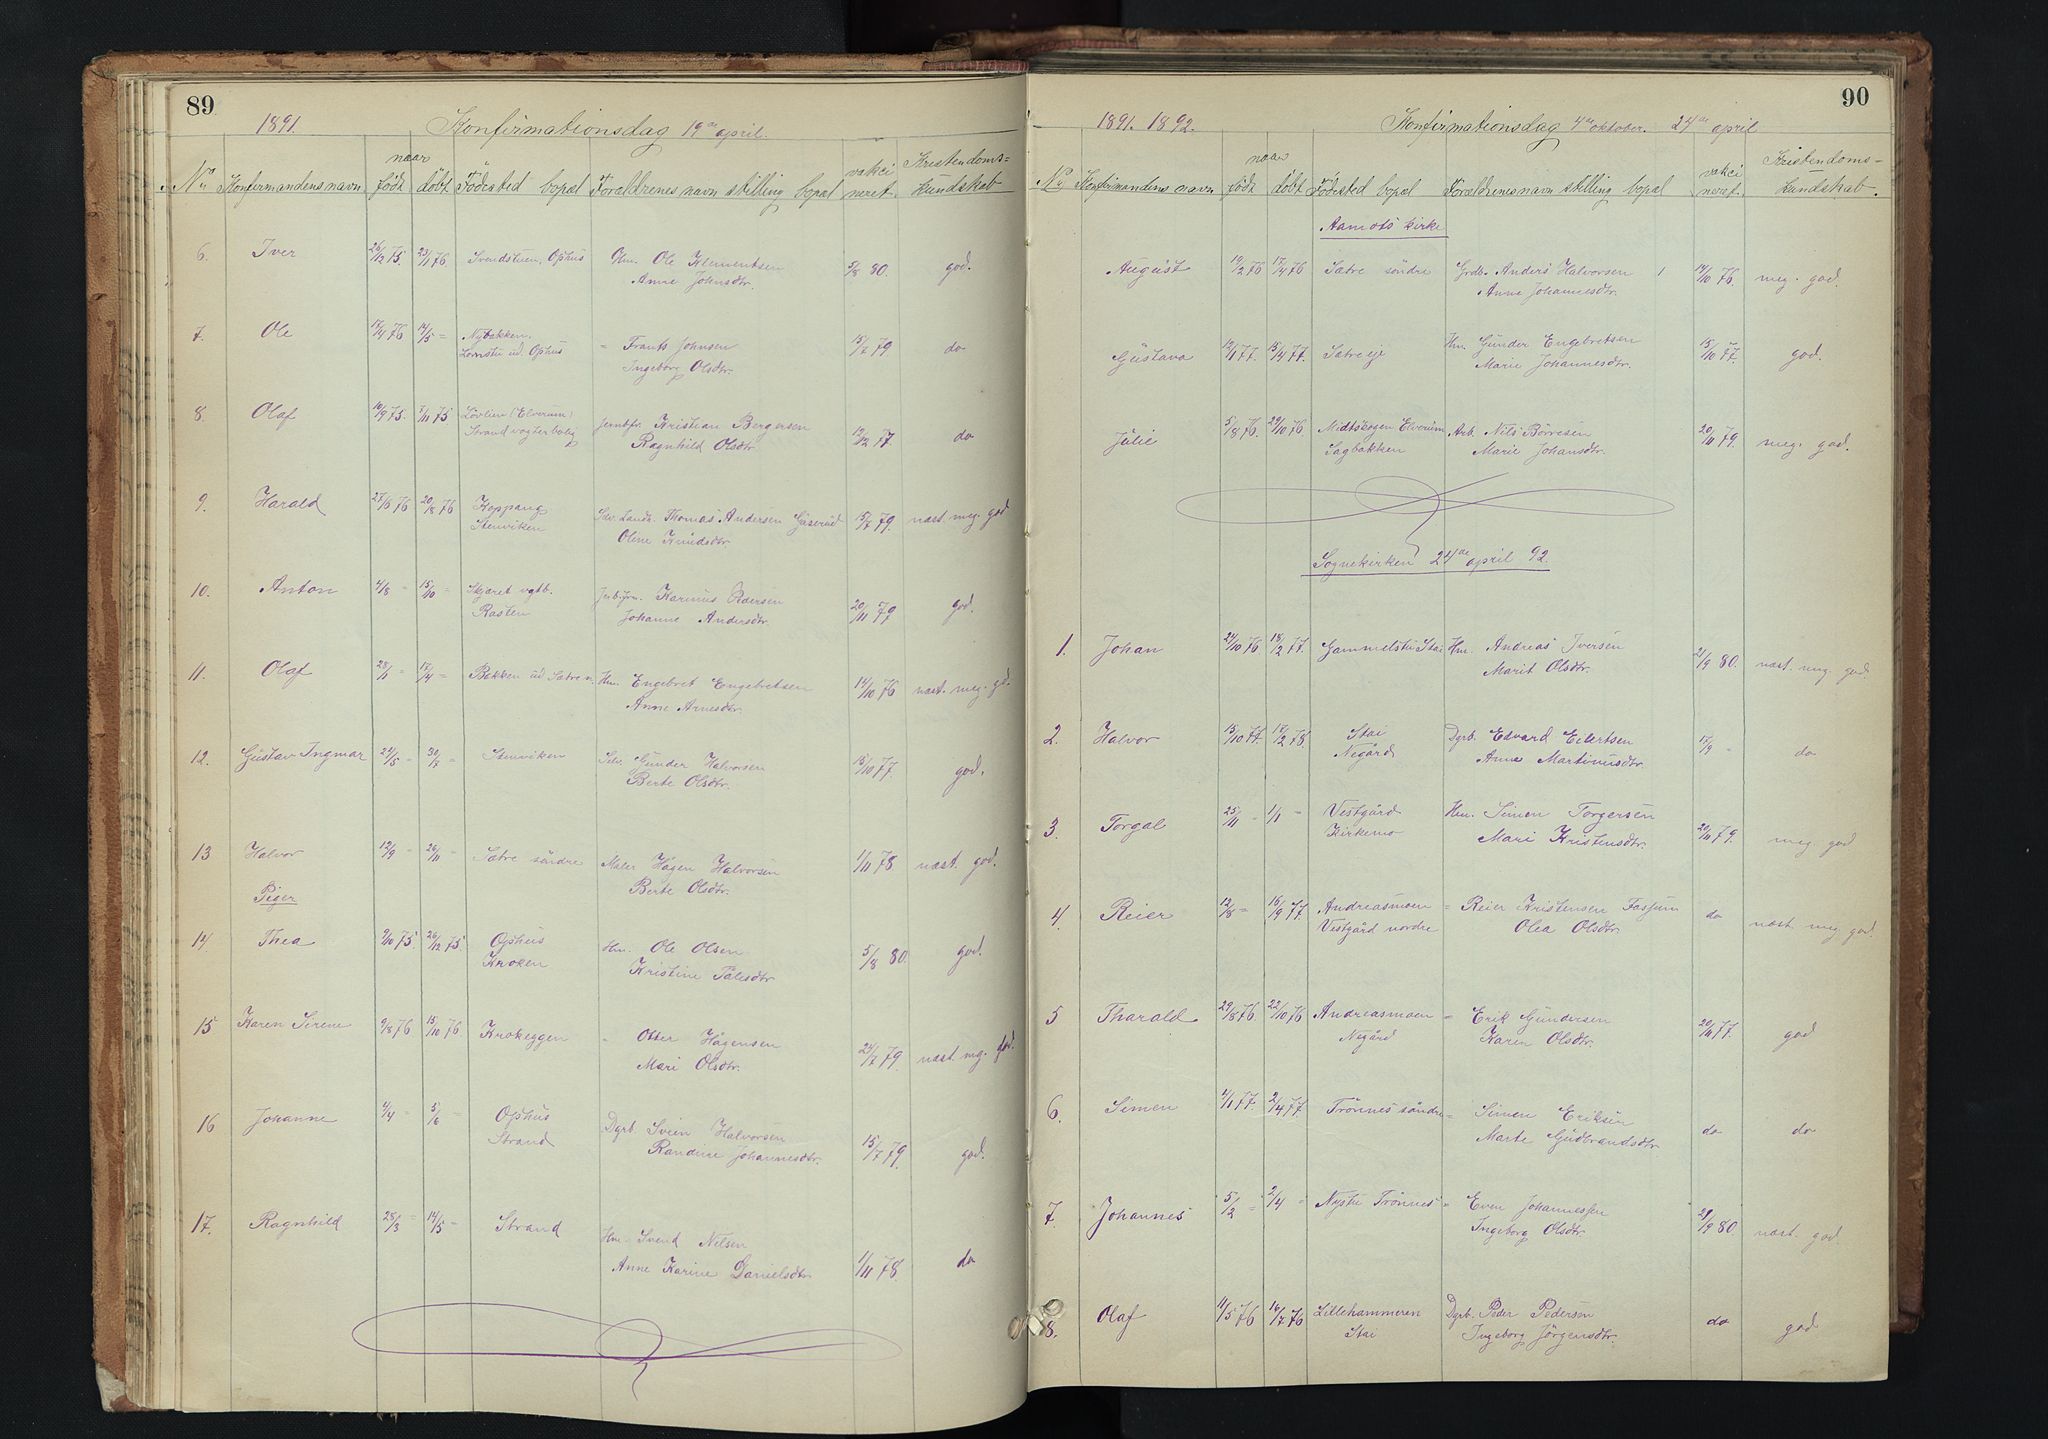 89
1891.
Konfirmationsdag 19de april.
No Konfirmandens navn naar født døbt Fødested bopæl Forældrenes navn stilling bopæl vakcineret Kristendomskundskab
6. Iver 26/12 75. 23/1 76 Svendstuen, Ophus Hm. Ole Klementsen 5/8 80. god.
Anne Johnsdtr.
7. Ole 17/4 76 14/5 = Nybakken, = Frants Johnsen 15/7 79 do
Lomstu ud. Ophus Ingeborg Olsdtr.
8. Olaf 10/9 75. 7/11 75 Løvlien (Elverum) Jernbfm. Kristian Bergersen 12/12 77. do
Strand vogterbolig Ragnhild Olsdtr.
9. Harald 27/6 76 20/8 76 Koppang Selv. Landh. Thomas Andersen Gåserud 15/7 79. næst. meg. god
Stenviken Olene Knudsdtr.
10. Anton 4/8 = 15/10 = Skjæret vgtb. Karinus Pedersen 20/11 79 god.
Rasten Johanne Andersdtr.
11. Olaf 28/1 = 17/4 = Bakken ud Sætre n. Hm. Engebret Engebretsen 14/10 76 næst. meg. gd.
Anne Arnesdtr.
12. Gustav Ingmar 24/5 = 30/7 = Stenviken Selv. Gunder Halvorsen 15/10 77 god.
Berte Olsdtr.
13 Halvor 12/9 = 26/11 = Sætre søndre Maler Hågen Halvorsen 1/11 78 næst. god.
Berte Olsdtr.
Piger
14. Thea 9/10 75 26/12 75 Ophus Hm. Ole Olsen 5/8 80. god.
Kroken Kristine Pålesdtr.
15 Karen Sirene 9/8 76 15/10 76 Krokeggen = Otter Hågensen 24/7 79. næst. mg. god.
Mari Olsdtr.
16 Johanne 4/4 = 5/6 = Ophus Dgrb. Svein Halvorsen 15/7 79. god.
Strand Randine Johannesdtr.
17. Ragnhild 28/3 = 14/5 = Strand Hm. Svend Nilsen 1/11 78. do
Anne Karine Danielsdtr.
90
1891. 1892.
Konfirmationsdag 4de oktober. 24de april
No Konfirmandens navn naar født døbt Fødested bopæl Forældrenes navn stilling bopæl vakcineret. Kristendomskundskab.
Aamots kirke
August 19/2 76 17/4 76 Sætre søndre Grdb. Anders Halvorsen 1 14/10 76. meg. god.
Anne Johannesdtr.
Gustava 12/1 77. 15/4 77. Sætre eje Hm. Gunder Engebretsen 15/10 77. god.
Marie Johannesdtr.
Julie 5/8 76. 29/10 76 Midtskogen Elverum Arb. Nils Børresen 20/11 79. meg. god.
Sagbakken Marie Johansdtr.
Sognekirken 24de april 92.
1. Johan 24/10 76 18/2 77. Gammelstu Stai Hm. Andreas Iversen 2/9 80. næst. meg. god.
Marit Olsdtr.
2. Halvor 15/10 77. 17/2 78. Stai Dgrb. Edvard Eilertsen 17/9 = do
Negård Anne Martinusdtr.
3. Torgal 25/11 = 1/1 = Vestgård Hm. Simen Torgersen 20/11 79. meg. god
Kirkemo Mari Kristensdtr.
4. Reier 12/8 = 16/9 77. Andreasmoen = Reier Kristensen Fossum do næst. meg. god.
Vestgård nordre Olea Olsdtr.
5 Tharald 29/8 76. 22/10 76 Andreasmoen = Erik Gundersen 20/11 77. god
Negård Karen Olsdtr.
6. Simen 4/1 77. 2/4 77. Trønnes søndre = Simen Eriksen do do
Marte Gudbrandsdtr
7. Johannes 5/2 = 2/4 = Nystu Trønnes = Even Johannessen 21/9 80. næst. god.
Ingeborg Olsdtr.
8. Olaf 11/5 76 16/7 76 Lillehammeren Dgrb. Peder Pedersen do god
Stai Ingeborg Jørgensdtr.